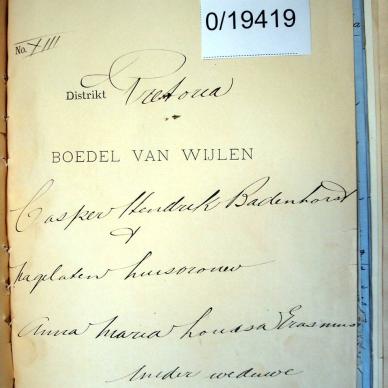 0/19419
No. XIII
Distrikt Pretoria
BOEDEL VAN WIJLEN
Casper Hendrik Badenhorst
&
nagelaten huisvrouw
Anna Maria Lousa Erasmus
weduwe